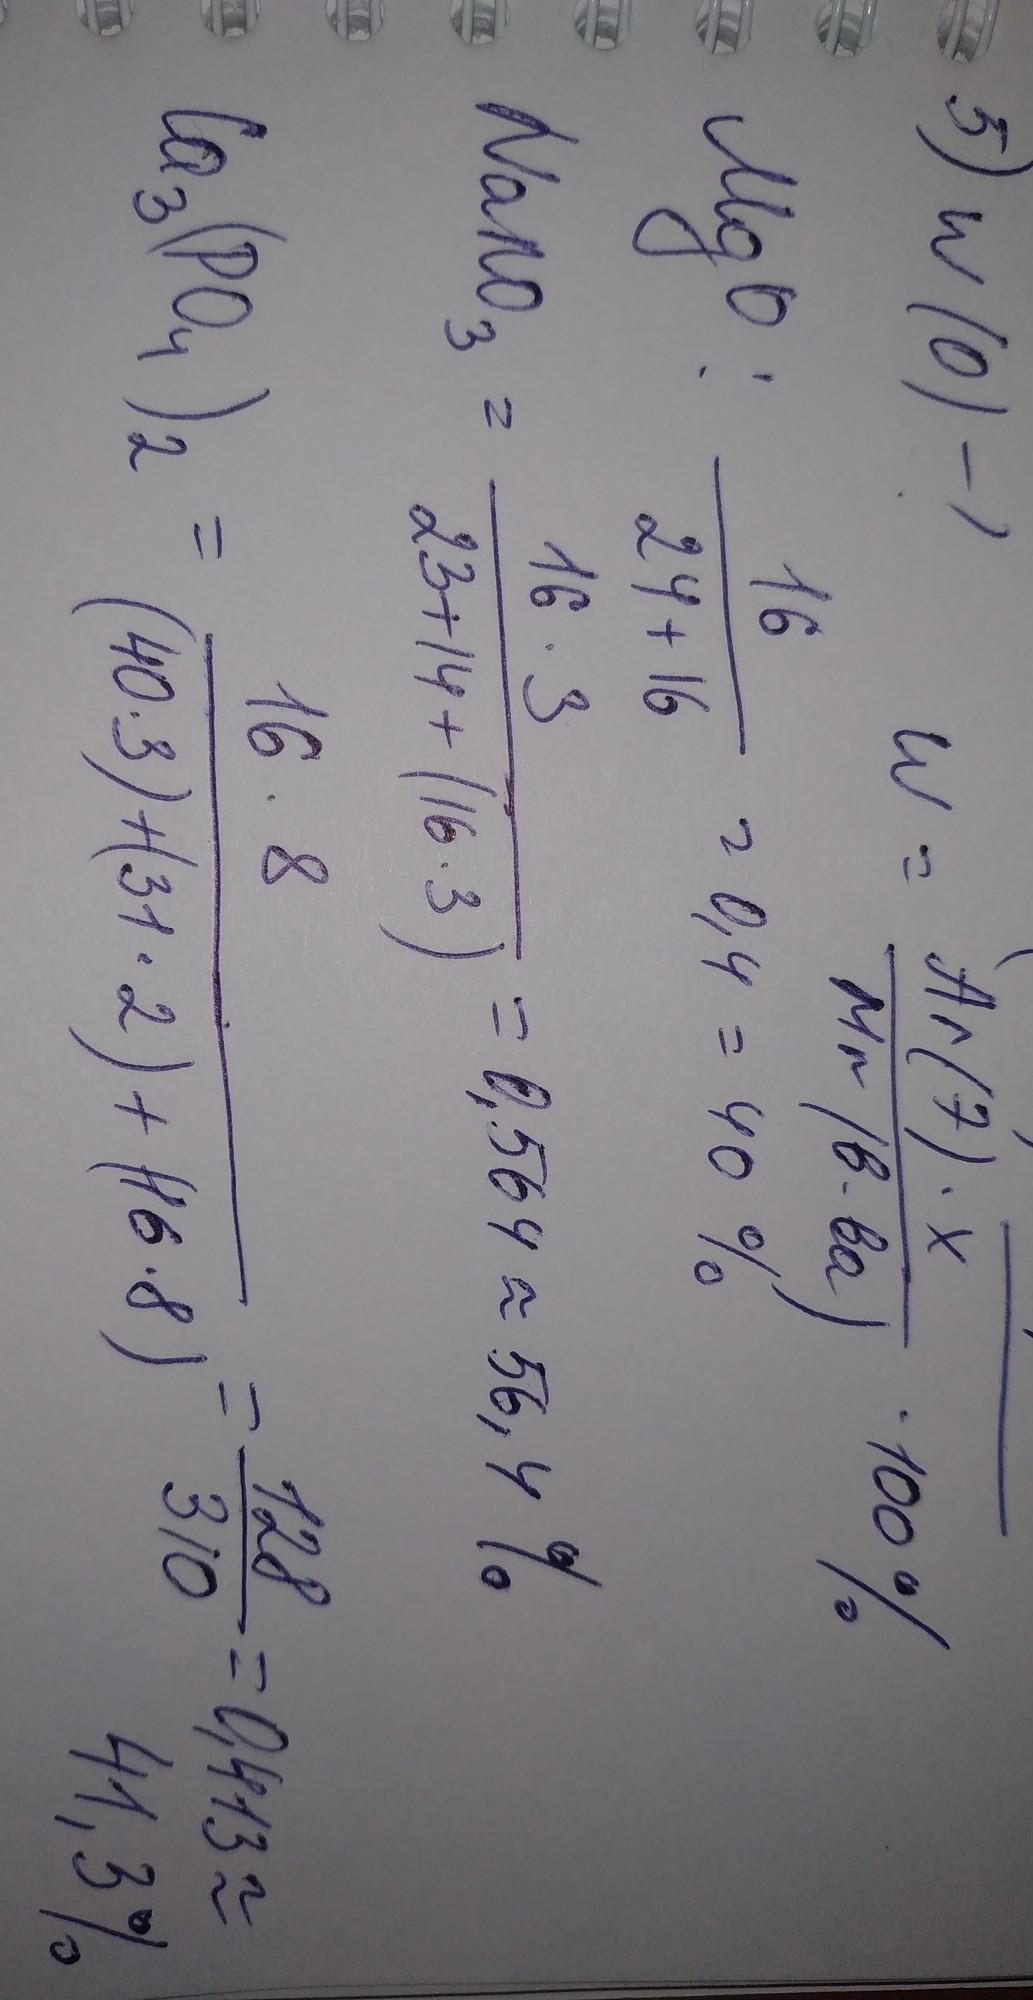 5) w(O) - ?
w = Ar(Э) · x / Mr(в-ва) · 100%
MgO : 16 / 24+16 = 0,4 = 40 %
NaNO3 = 16 · 3 / 23+14+(16·3) = 0,564 ≈ 56,4 %
Ca3(PO4)2 = 16 · 8 / (40·3)+(31·2)+(16·8) = 128 / 310 = 0,413 ≈
41,3%